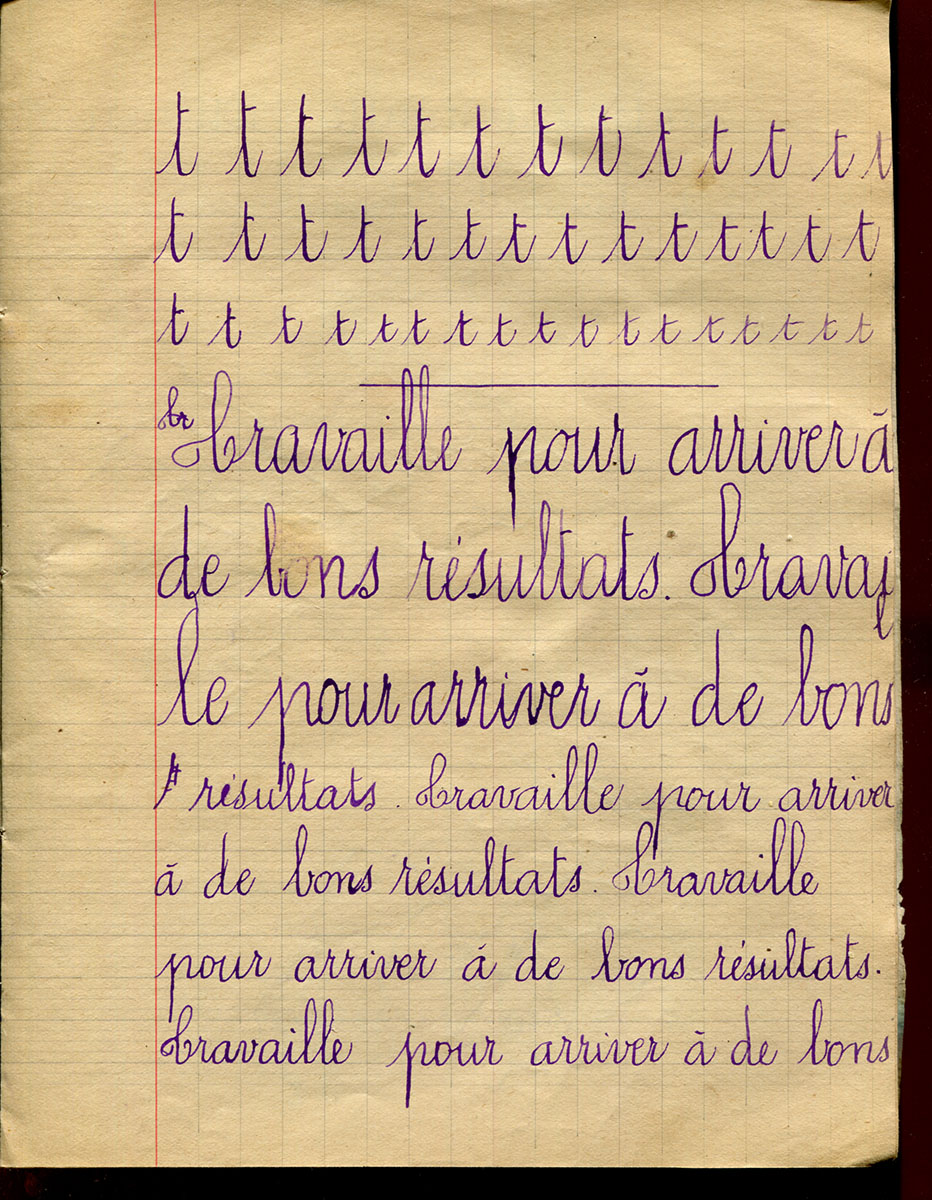 t t t t t t t t t t t t t
t t t t t t t t t t t t t t
t t t t t t t t t t t t t t t t t
Tr Travaille pour arriver à
de bons résultats. Travail
le pour arriver à de bons
résultats. Travaille pour arriver
à de bons résultats. Travaille
pour arriver à de bons résultats.
Travaille pour arriver à de bons